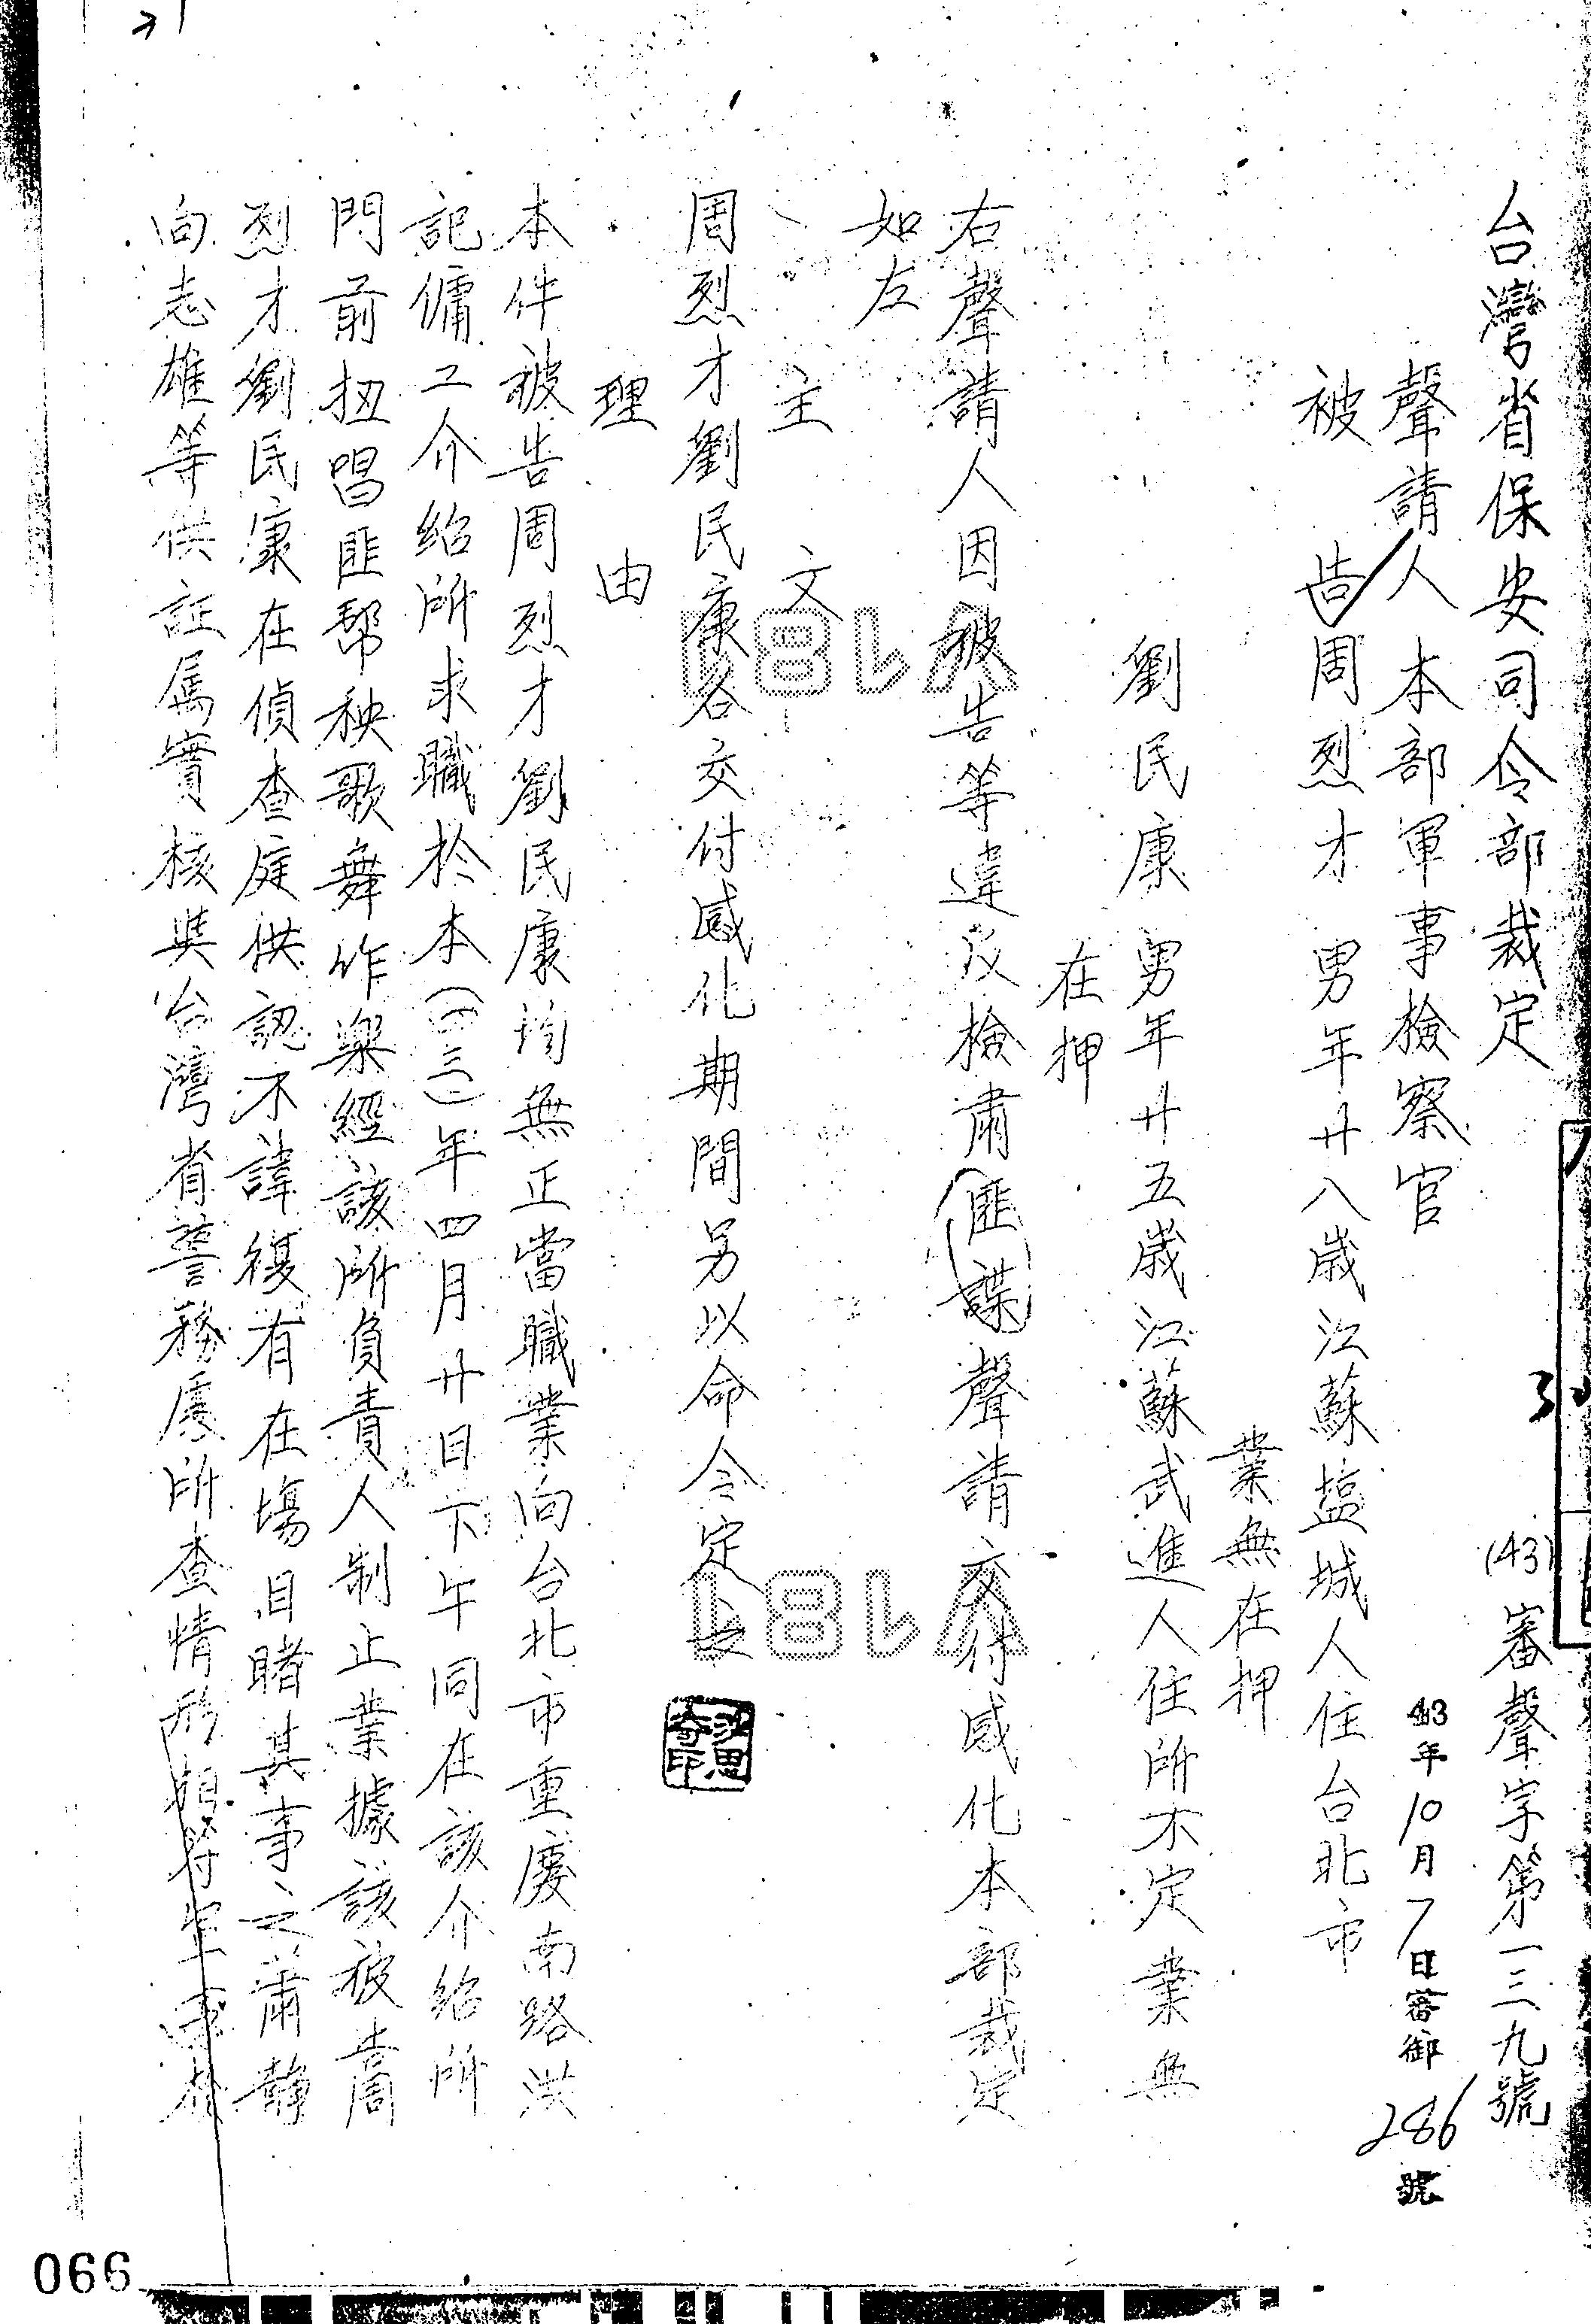 台灣省保安司令部裁定
(43)審聲字第一三九號
43年10月7日審御286號
聲請人本部軍事檢察官
被告周烈才 男年廿八歲江蘇盐城人住台北市
業無在押
劉民康 男年廿五歲江蘇武進人住所不定業無
在押
右聲請人因被告等違反檢肅匪諜聲請交付感化本部裁定
如左
主文
周烈才劉民康各交付感化期間另以命令定之
理由
本件被告周烈才劉民康均無正當職業向台北市重慶南路洪
記傭工介紹所求職於本(四三)年四月廿日下午同在該介紹所
門前扭唱匪幫秧歌舞作樂經該所負責人制止業據該被告周
烈才劉民康在偵查庭供認不諱復有在場目睹其事之蕭靜
向志雄等供証属實核與台灣省警務處所查情形相符軍事檢
066